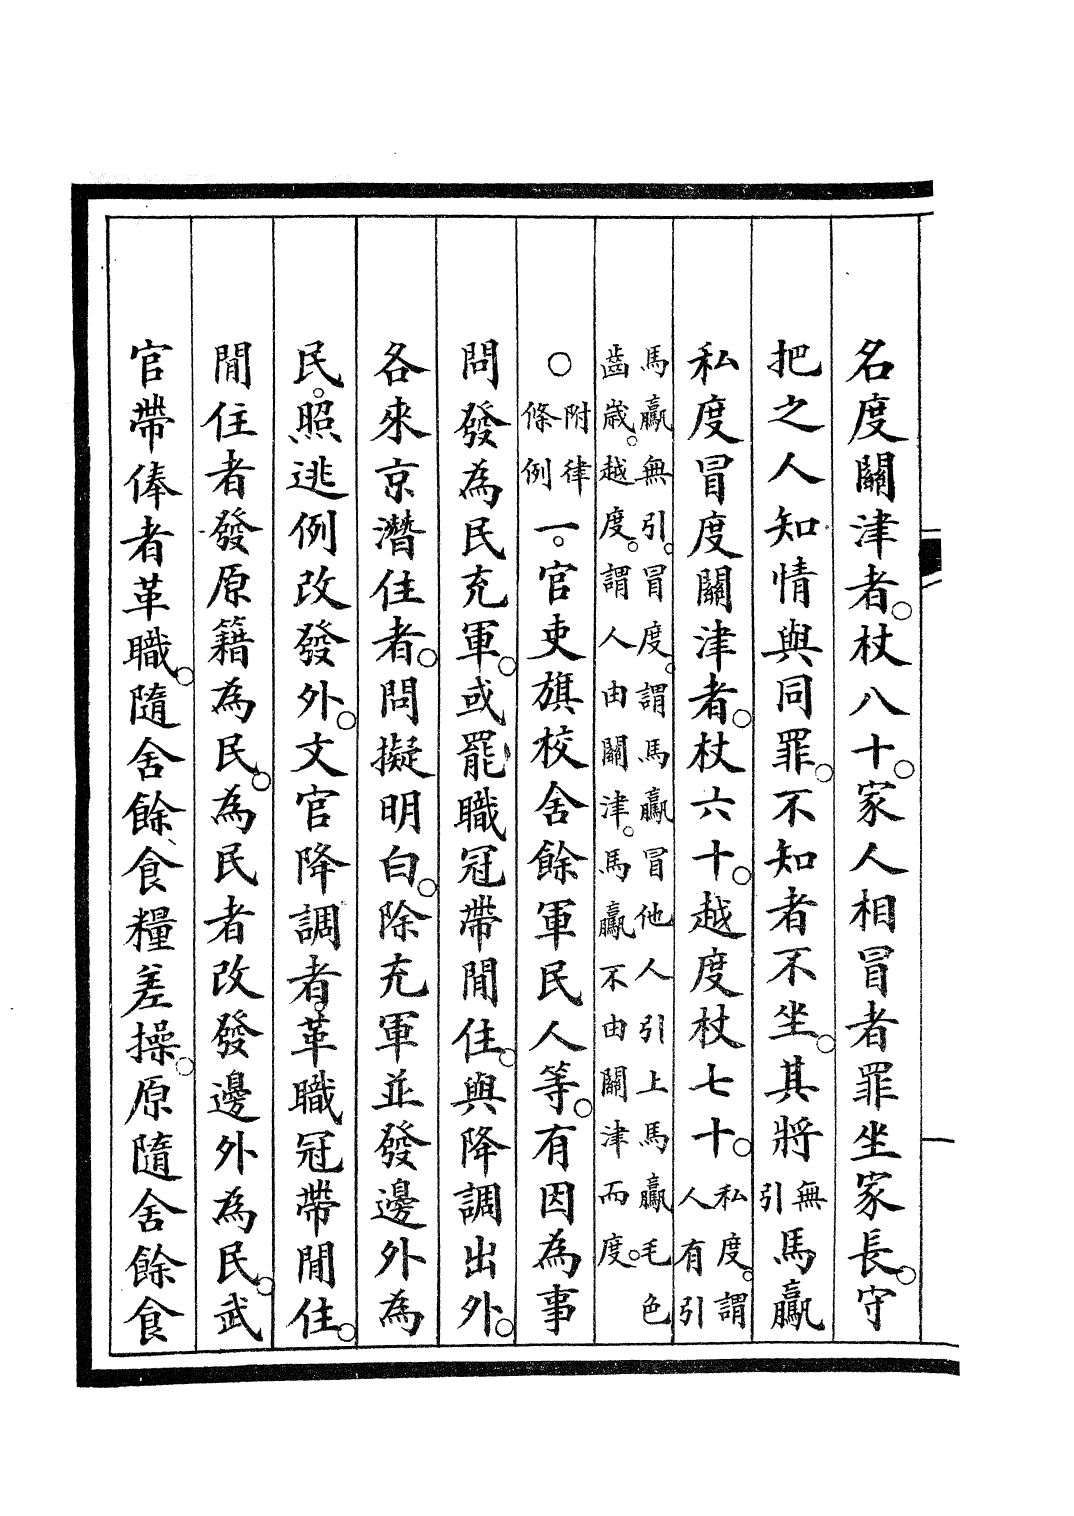 名度關津者。杖八十。家人相冒者罪坐家長。守
把之人知情與同罪。不知者不坐。其將無引馬驘
私度冒度關津者。杖六十。越度杖七十。私度。謂人有引
馬驘無引。冒度。謂馬驘冒他人引上馬驘毛色
齒歲。越度。謂人由關津。馬驘不由關津而度。
○附律條例一。官吏旗校舍餘軍民人等。有因為事
問發為民充軍。或罷職冠帶閒住。與降調出外。
各來京潛住者。問擬明白。除充軍並發邊外為
民。照逃例改發外。文官降調者。革職冠帶閒住。
閒住者發原籍為民。為民者改發邊外為民。武
官帶俸者革職。隨舍餘食糧差操。原隨舍餘食